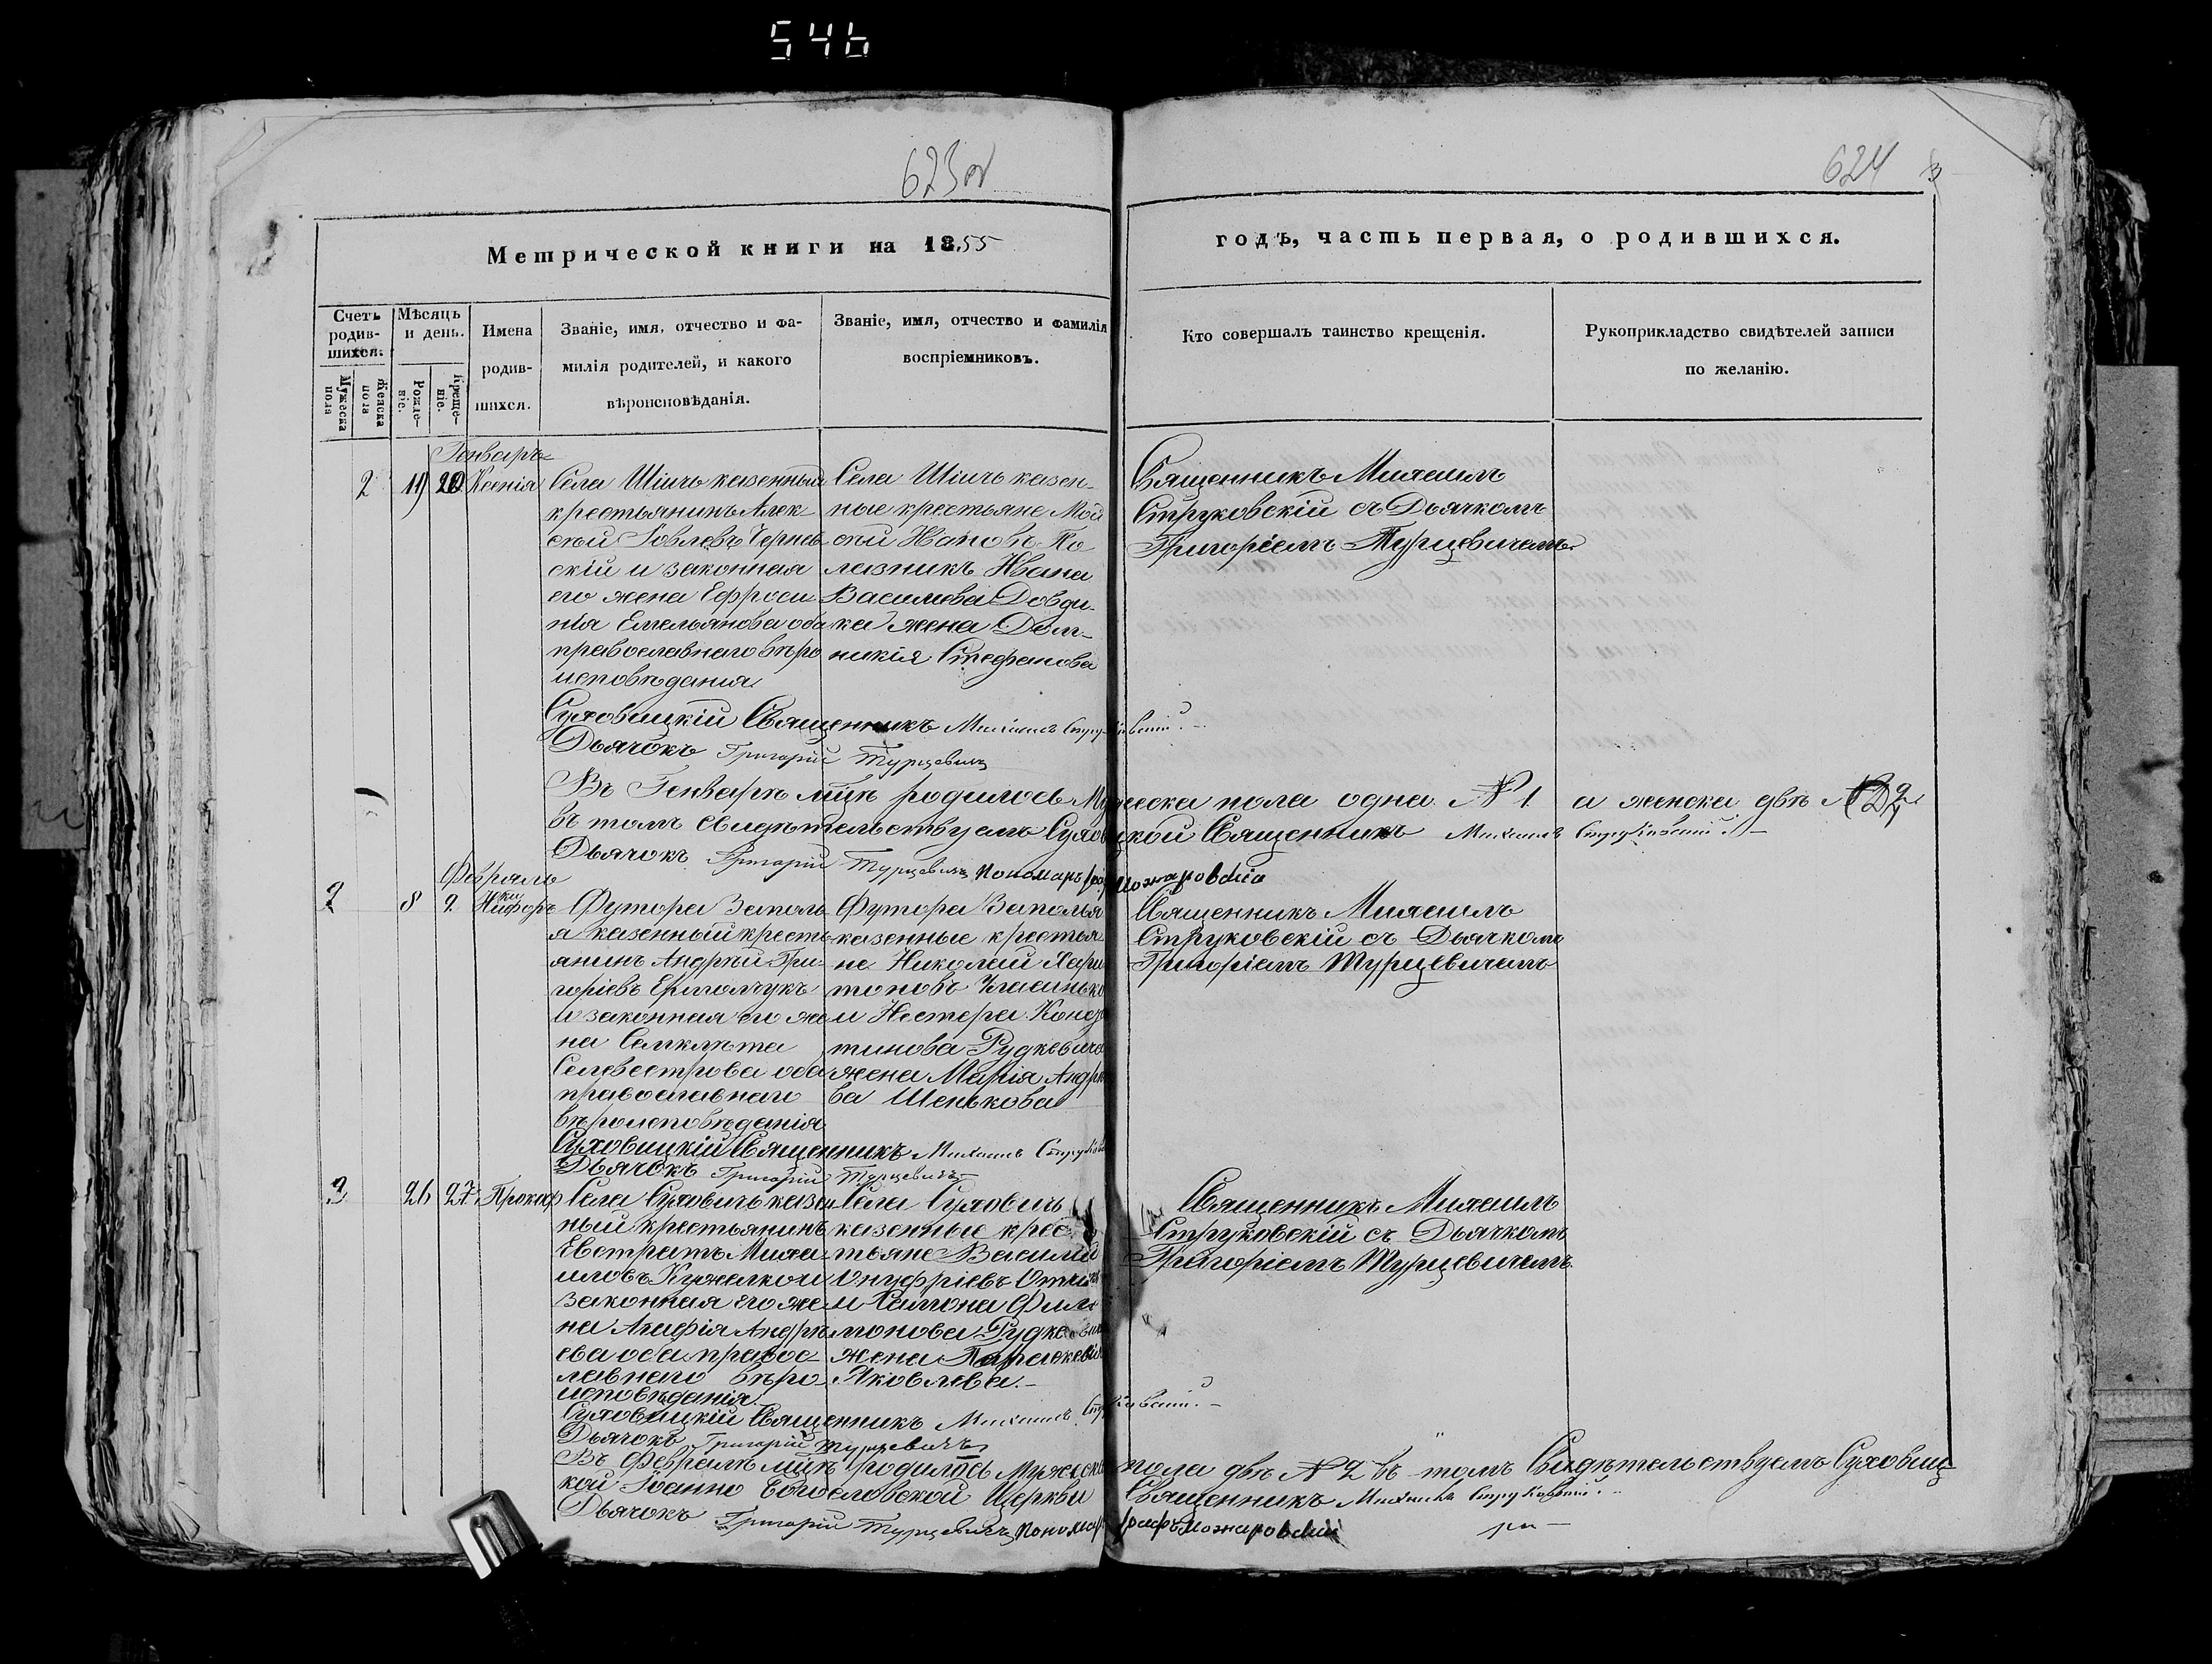 546
623об
624
Метрической книги на 1855
годъ, часть первая, о родившихся.
Счетъ родив-шихся.
Мужеска пола
Женска пола
Мѣсяцъ и день.
Рожде-ніе.
Креще-ніе.
Имена родив-шихся.
Званіе, имя, отчество и фа-
милія родителей, и какого
вѣроисповѣданія.
Званіе, имя, отчество и фамилія
воспріемниковъ.
Кто совершалъ таинство крещенія.
Рукоприкладство свидѣтелей записи
по желанію.
Генварь
2 19 20 Ксенія
Села Шіичь казенный
крестьянинъ Алек-
сѣй Іовлевъ Чернев
скій и законная
его жена Ефроси
нія Емельянова оба
православнаго вѣро
исповѣданія.
Села Шіичь казен-
ные крестьяне Мой
сѣй Ивановъ
Ивана
Василіева Довди-
ка жена Дом-
никія Стефанова
Священникъ Михаилъ
Струковскій съ Дьячкомъ
Григоріемъ Турцевичемъ.
Суховицкій Священникъ Михаилъ Струковскій.
Дьячокъ Григорій Турцевичъ
Въ Генварѣ мцѣ родилось Мужеска пола одна №1 а женска двѣ №2
въ томъ свидѣтельствуемъ Суховицкой Священникъ Михаилъ Струковскій.
Дьячокъ Григорій Турцевичъ Пономарь Можаровскій
Февраль
2 8 9 Никифоръ
Футора Заполь
я казенный кресть
янинъ Андрѣй Гри-
горіевъ Ермолчукъ
и законная его же
на Самклѣта
Селвестрова оба
православнаго
вѣроисповѣданія.
Футора Заполья
казенные крестья
не Николай Хари
тоновъ
и Нестера
тинова Рудкевича
жена Марія Андрѣе
ва Шенькова
Священникъ Михаилъ
Струковскій съ Дьячкомъ
Григоріемъ Турцевичемъ
Суховицкій Священникъ Михаилъ Струков
Дьячокъ Григорій Турцевичъ
3 26 27 Прокоф
Села Суховичь казен
ный крестьянинъ
Евстратъ Миха-
иловъ Кужелко и
законная его же
на Агафія Андрѣ
ева оба правос-
лавнаго вѣро-
исповѣданія.
Села Суховичь
казенные крес
тьяне Василій
Онуфріевъ
и Самсона Фили
монова Рудке
жена Параскевія
Яковлева.
Священникъ Михаилъ
Струковскій съ Дьячкомъ
Григоріемъ Турцевичемъ.
Суховицкій Священникъ Михаилъ Струковскій.
Дьячокъ Григорій Турцевичъ
Въ Февралѣ мцѣ родилось Мужеска пола двѣ №2 въ томъ Свидѣтельствуемъ Суховиц
кой Іоанно Богословской Церкви Священникъ Михаилъ Струковскій.
Дьячокъ Григорій Турцевичъ Пономарь Можаровскій